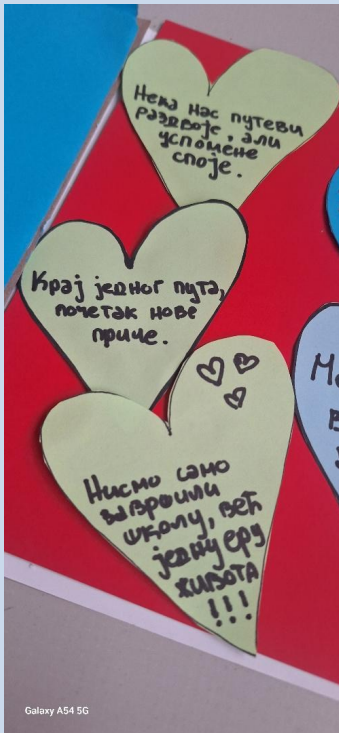 Нека нас путеви
раздвоје, али
успомене
споје.
Крај једног пута,
почетак нове
приче.
Нисмо само
завршили
школу, већ
једну еру
живота
!!!
М
Galaxy A54 5G